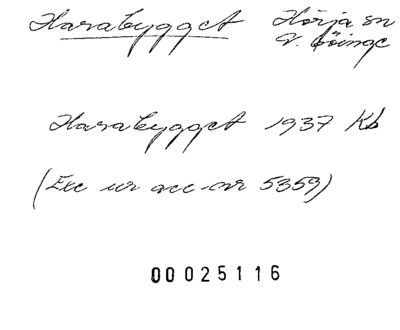 Harabygget Hörja sn
V. Göinge
Harabygget 1937 Kb
(Exc ur acc nr 5359)
00025116